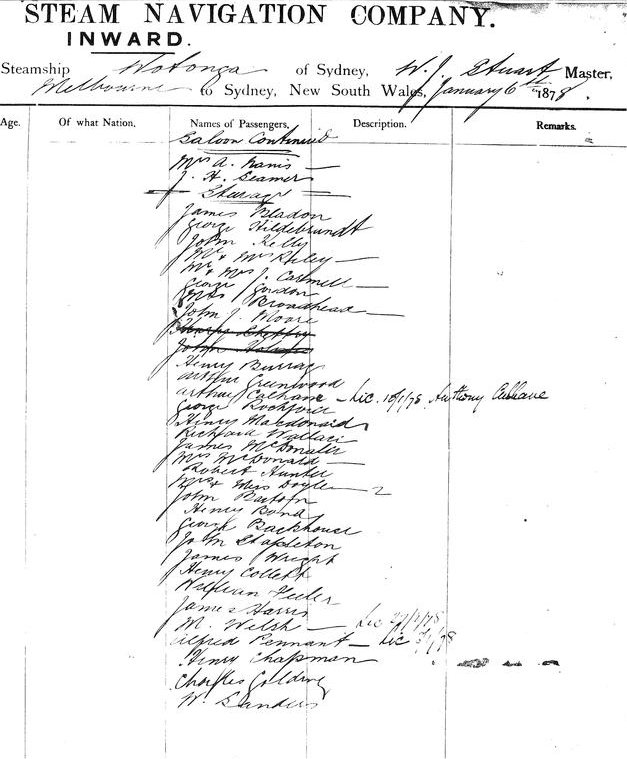 STEAM NAVIGATION COMPANY.
INWARD.
Steamship Wotonga of Sydney, W. J. Stuart Master,
Melbourne to Sydney, New South Wales, January 6th 1878.
Age. Of what Nation. Names of Passengers, Description. Remarks.
Saloon Continued
Mrs A.
J. H. Seamer
Steerage
James Bladon
George Hildebrandt
John Kelly
Mr & Mrs
Mr & Mrs J. Cartmell
George Gordon
Mrs Broadhead
John J. Moore
John
Henry Burray
Arthur Greenwood
Arthur Calhane - Lic. 10/1/78 Anthony Culhane
George Rockford
Henry Macdonald
Richard Wallace
James McDonald
Mrs McDonald
Robert Hunter
Mrs & Miss Doyle 2
John Barton
Henry Bond
George Backhouse
John Stapleton
James Wright
Henry Collett
William
James Harris
M. Welsh - Lic 27/2/78
Alfred Pennant - Lic
Henry Chapman
Charles Golding
W. Sanders